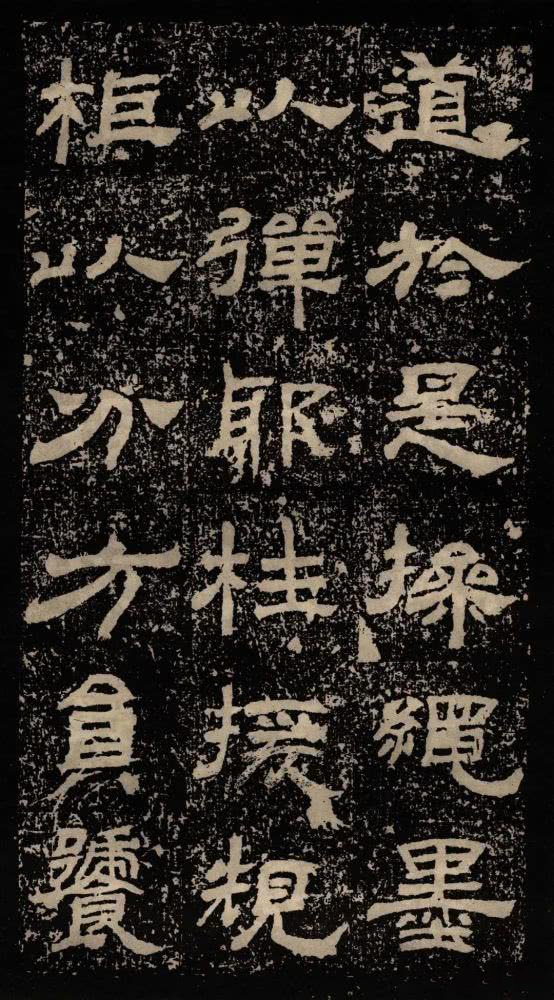 道於是操繩墨
以彈耶枉援規
柜以分方員饕